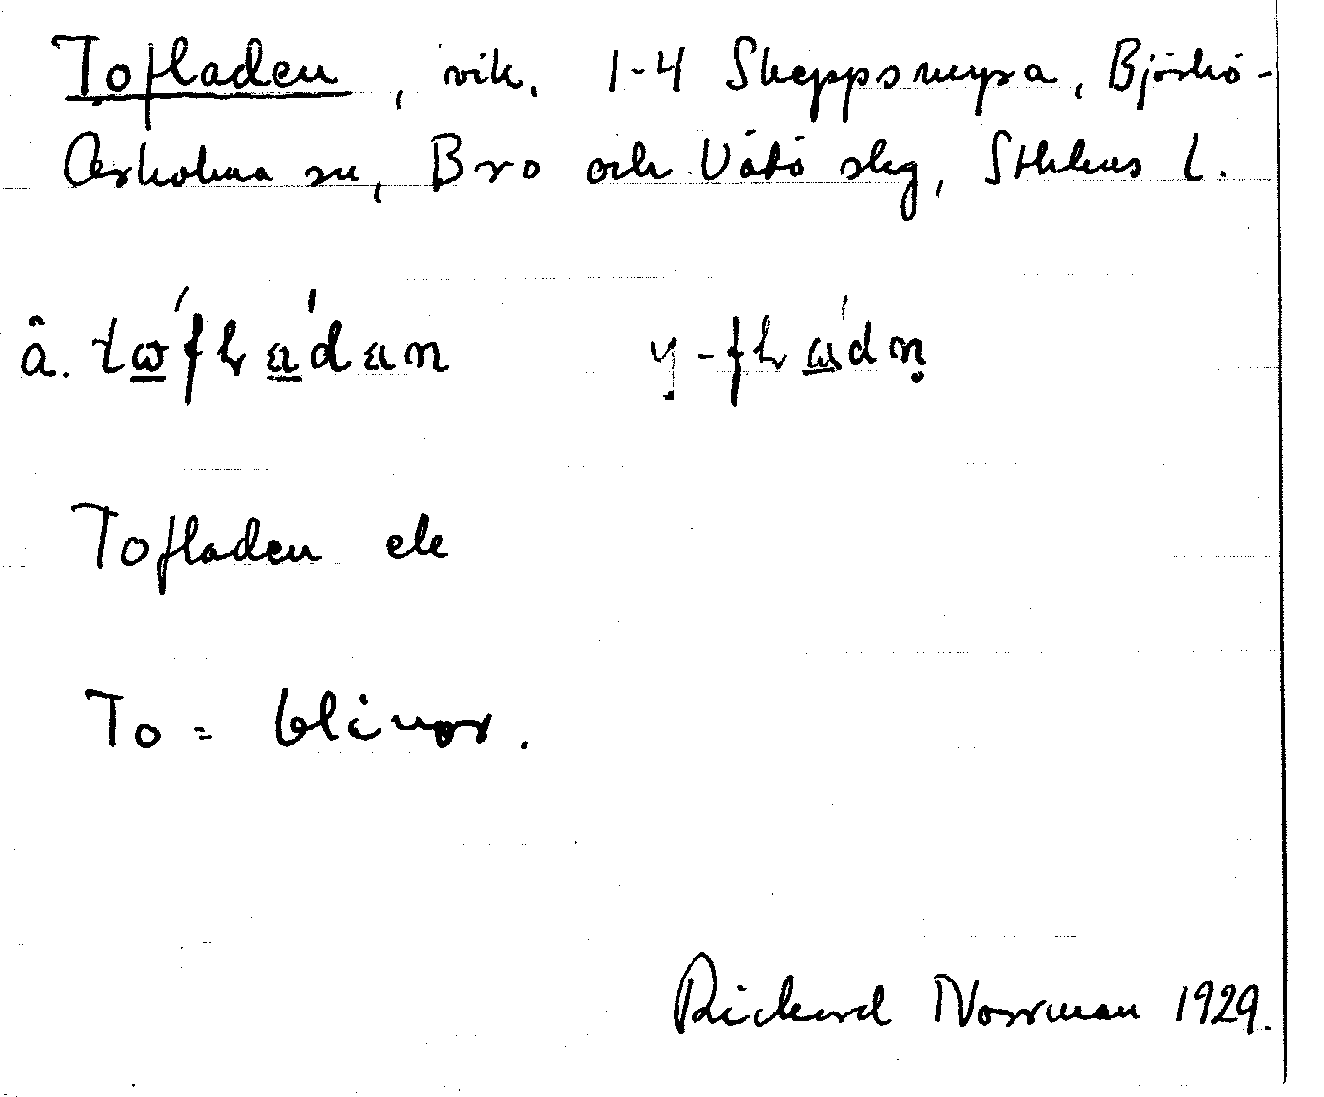 Tofladen, vik, 1-4 Skeppsmyra, Björkö-
Arholma sn, Bro och Vätö skg, Sthlms l.
â. tώflá̱dan y-flώdn̥
Tofladen ek
To = blånor.
Rickard Norrman 1929.